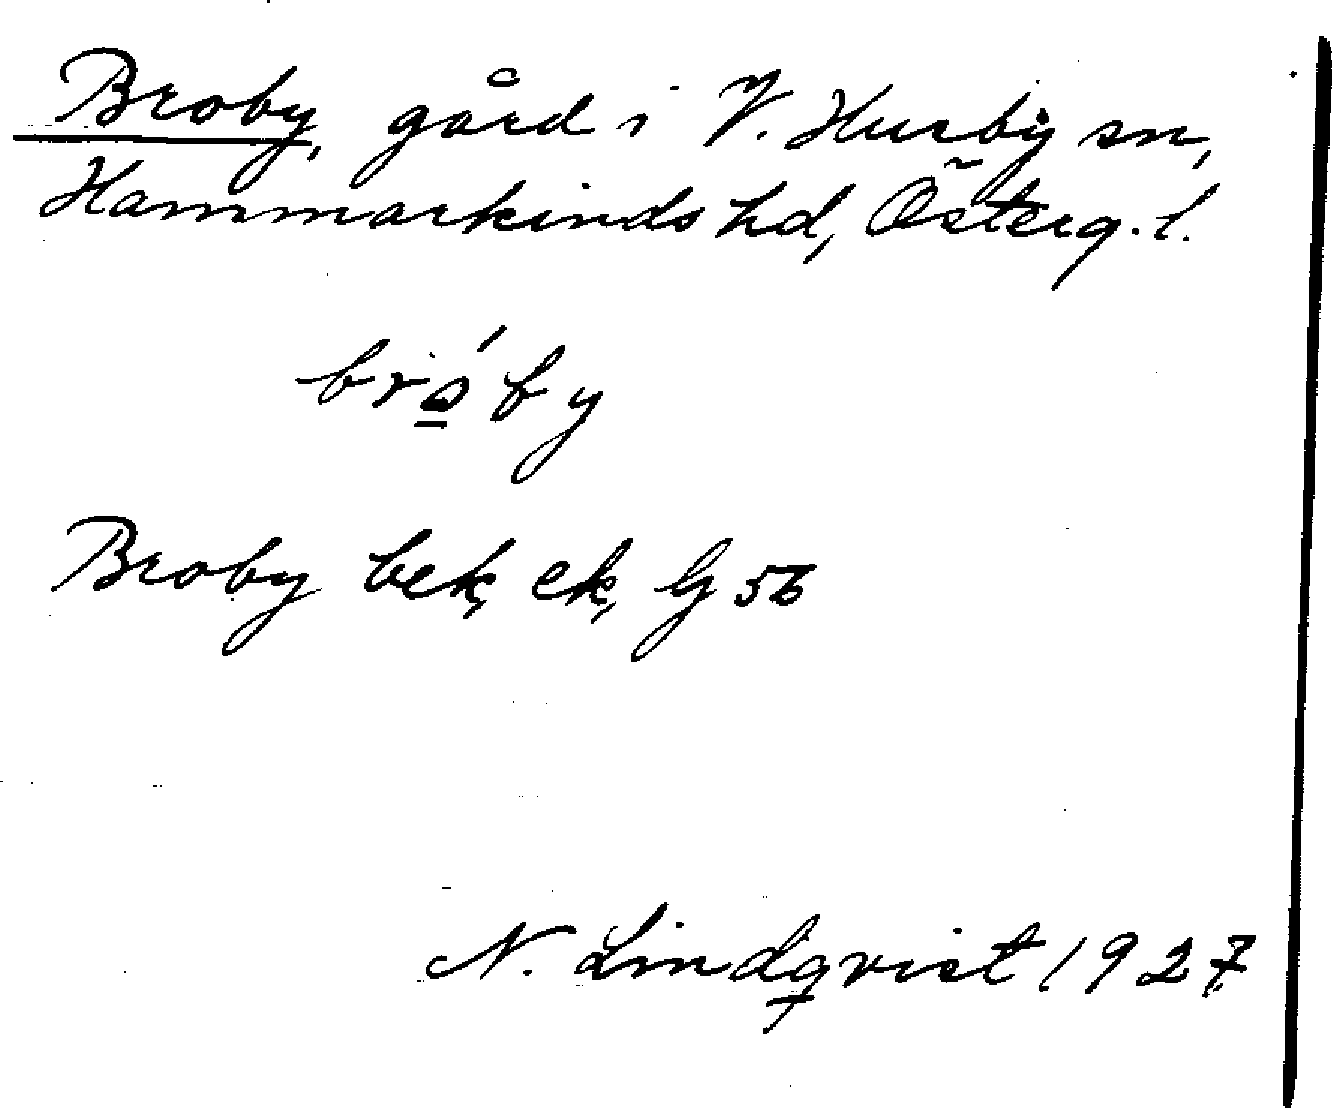 Broby, gård i V. Husby sn,
Hammarkinds hd, Österg. l.
bro̲´by
Broby bek, ek, G 56
N. Lindqvist 1927